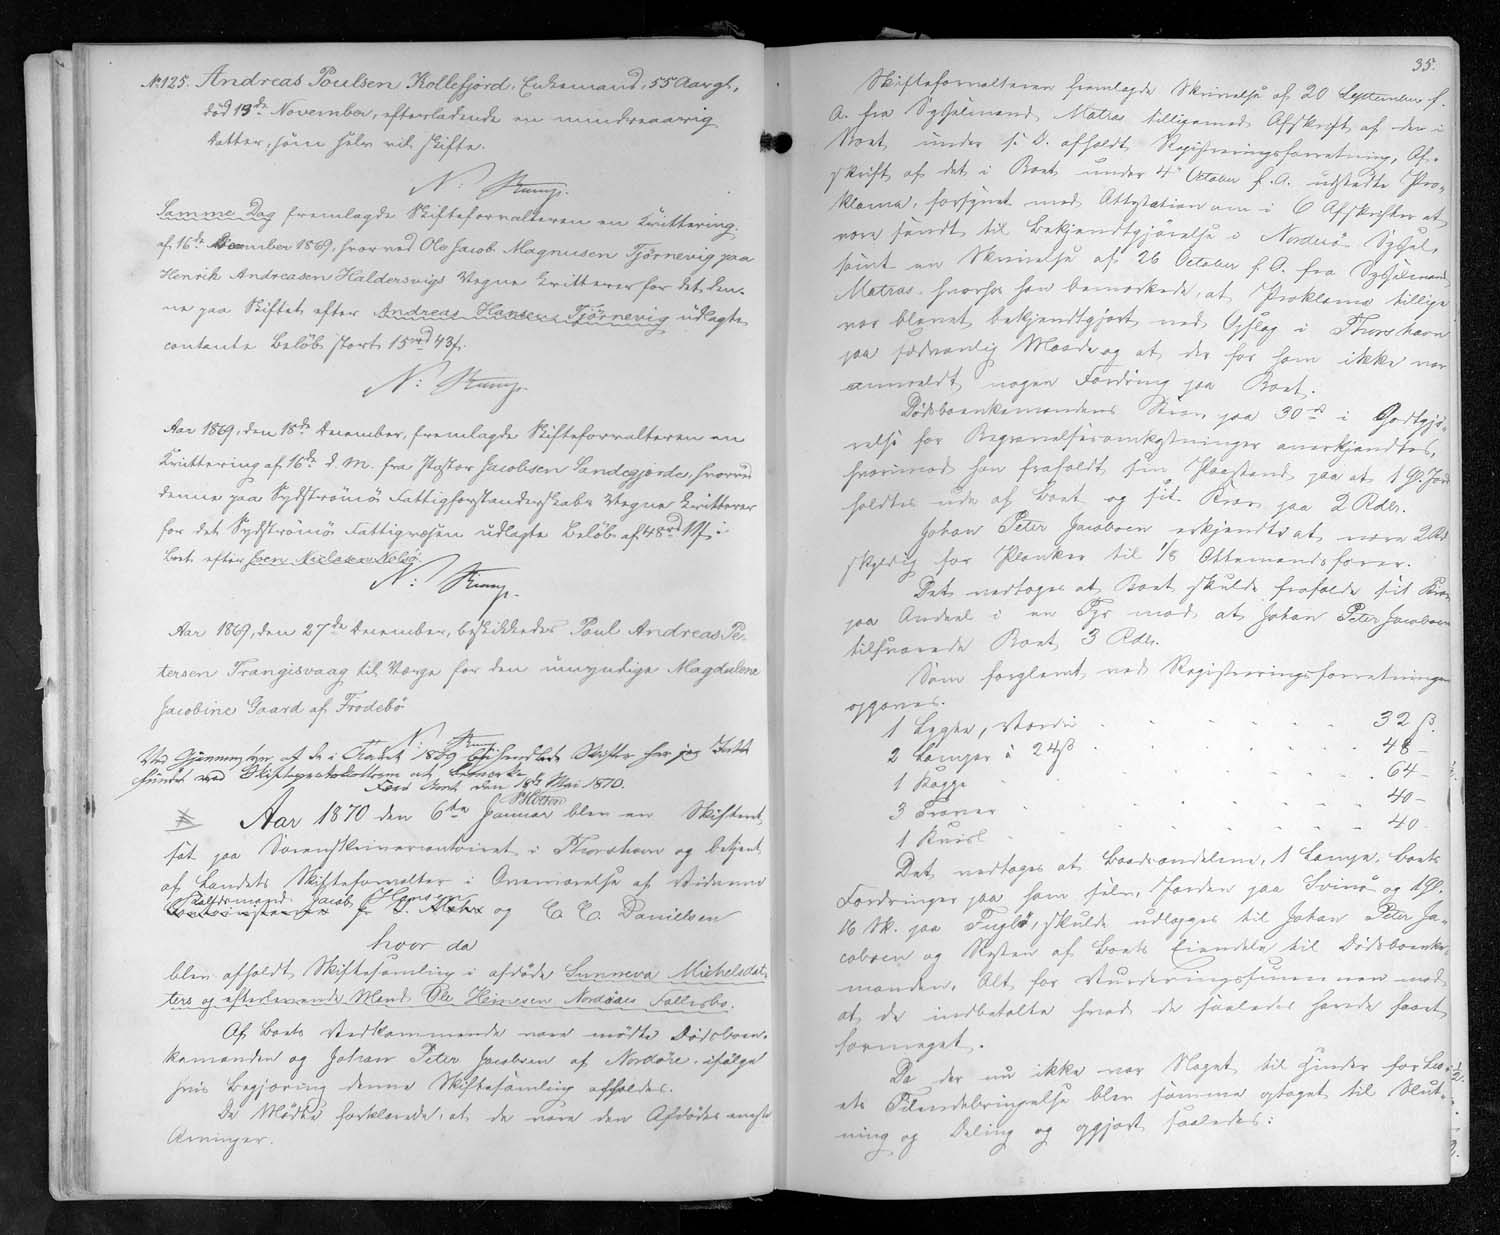 No 125. Andreas Poulsen Kollefjord, Enkemand, 55 Aar gl.,
död 13de November, efterladende en mindreaarig
Datter, som selv vil skifte.
N: Krump.
Samme Dag fremlagde Skifteforvalteren en Kvittering
af 16de December 1869, hvorved Ole Jacob Magnusen Tjörnevig paa
Henrik Andreasen Haldersvigs Vegne kvitterer for det den-
ne paa Skiftet efter Andreas Hansen Tjörnevig udlagte
contante Belöb stort 15 rd 43 s.
N: Krump.
Aar 1869, den 18de December, fremlagde Skifteforvalteren en
Kvittering af 16de d. M. fra Pastor Jacobsen Sandegjerde, hvorved
denne paa Sydströmö Fattigforstanderskabs Vegne kvitterer
for det Sydströmö Fattigvæsen udlagte Belöb af 48 rd i
Boet efter Sven Niclasen Nolsö
N: Krump.
Aar 1869, den 27de December, beskikkedes Poul Andreas Pe-
tersen Trangisvaag til Værge for den umyndige Magdalena
Jacobine Gaard af Frodebö
N: Krump.
Ved Gjennemsyn af de i Aaret 1869 behandlede Skifter har jeg Intet
fundet ved Skifteprotokollen at bemærke.
Færö Amt den 18de Mai 1870.
Aar 1870 den 6te Januar blev en Skifteret
sat paa Sorenskrivercontoiret i Thorshavn og betjent
af Landets Skifteforvalter i Overværelse af Vidnerne
Jacob og C. C. Danielsen
hvor da
blev afholdt Skiftesamling i afdöde Sunneva Michelsdat-
ters og efterlevende Mand Ole Heinesen Nordöre Fællesbo.
Af Boets Vedkommende vare mödte Dödsboen-
kemanden og Johan Peter Jacobsen af Nordöre, ifölge
hvis Begjæring denne Skiftesamling afholdes.
De Mödte forklarede, at de vare den Afdödes eneste
Arvinger.
35.
Skifteforvalteren fremlagde Skrivelse af 20 September f.
A. fra Sysselmand Matras tilligemed Afskrift af den i
Boet under s. D. afholdt Registreringsforretning, Af-
skrift af det i Boet under 4de October f. A. udstedte Pro-
klama, forsynet med Attestation om i 6 Afskrifter at
være sendt til Bekjendtgjörelse i Norderö Syssel,
samt en Skrivelse af 26 October f. A. fra Sysselmand
Matras, hvorhos han bemærkede, at Proklama tillige
var blevet bekjendtgjort ved Opslag i Thorshavn
paa sædvanlig Maade og at der for ham ikke var
anmeldt nogen Fordring paa Boet.
Dödsboenkemandens Krav paa 30 rd i Godtgjö-
relse for Begravelsesomkostninger anerkjendtes,
hvorimod han frafaldt sin Paastand paa at 1 G. Jord
holdtes ude af Boet og sit Krav paa 2 Rdlr.
Johan Peter Jacobsen erkjendte at være 2 Rd
skyldig for Planker til 1/8 Ottemandsfarer.
Det vedtoges at Boet skulde frafalde sit Krav
paa Andeel i en Tyr mod at Johan Peter Jacobsen
tilsvarede Boet 3 Rdlr.
Som forglemt ved Registreringsforretningen
opgaves.
1 Lygte, Værdi . . . . . . 32 ß.
2 Lamper à 24 ß . . . . . . 48 –
1 . . . . . . 64 –
3 . . . . . . 40 –
1 . . . . . . 40 –
Det vedtoges at Baadsandelene, 1 Lampe, Boets
Fordringer paa ham selv, Jorden paa Svinö og 1 G.
16 Sk. paa Fuglö, skulde udlægges til Johan Peter Ja-
cobsen og Resten af Boets Eiendele til Dödsboenke-
manden, Alt for Vurderingssummen mod
at de indbetalte hvad de saaledes havde faaet
formeget.
Da der nu ikke var Noget til Hinder for Bo-
ets Tilendebringelse blev samme optaget til Slut-
ning og Deling og opgjort saaledes: